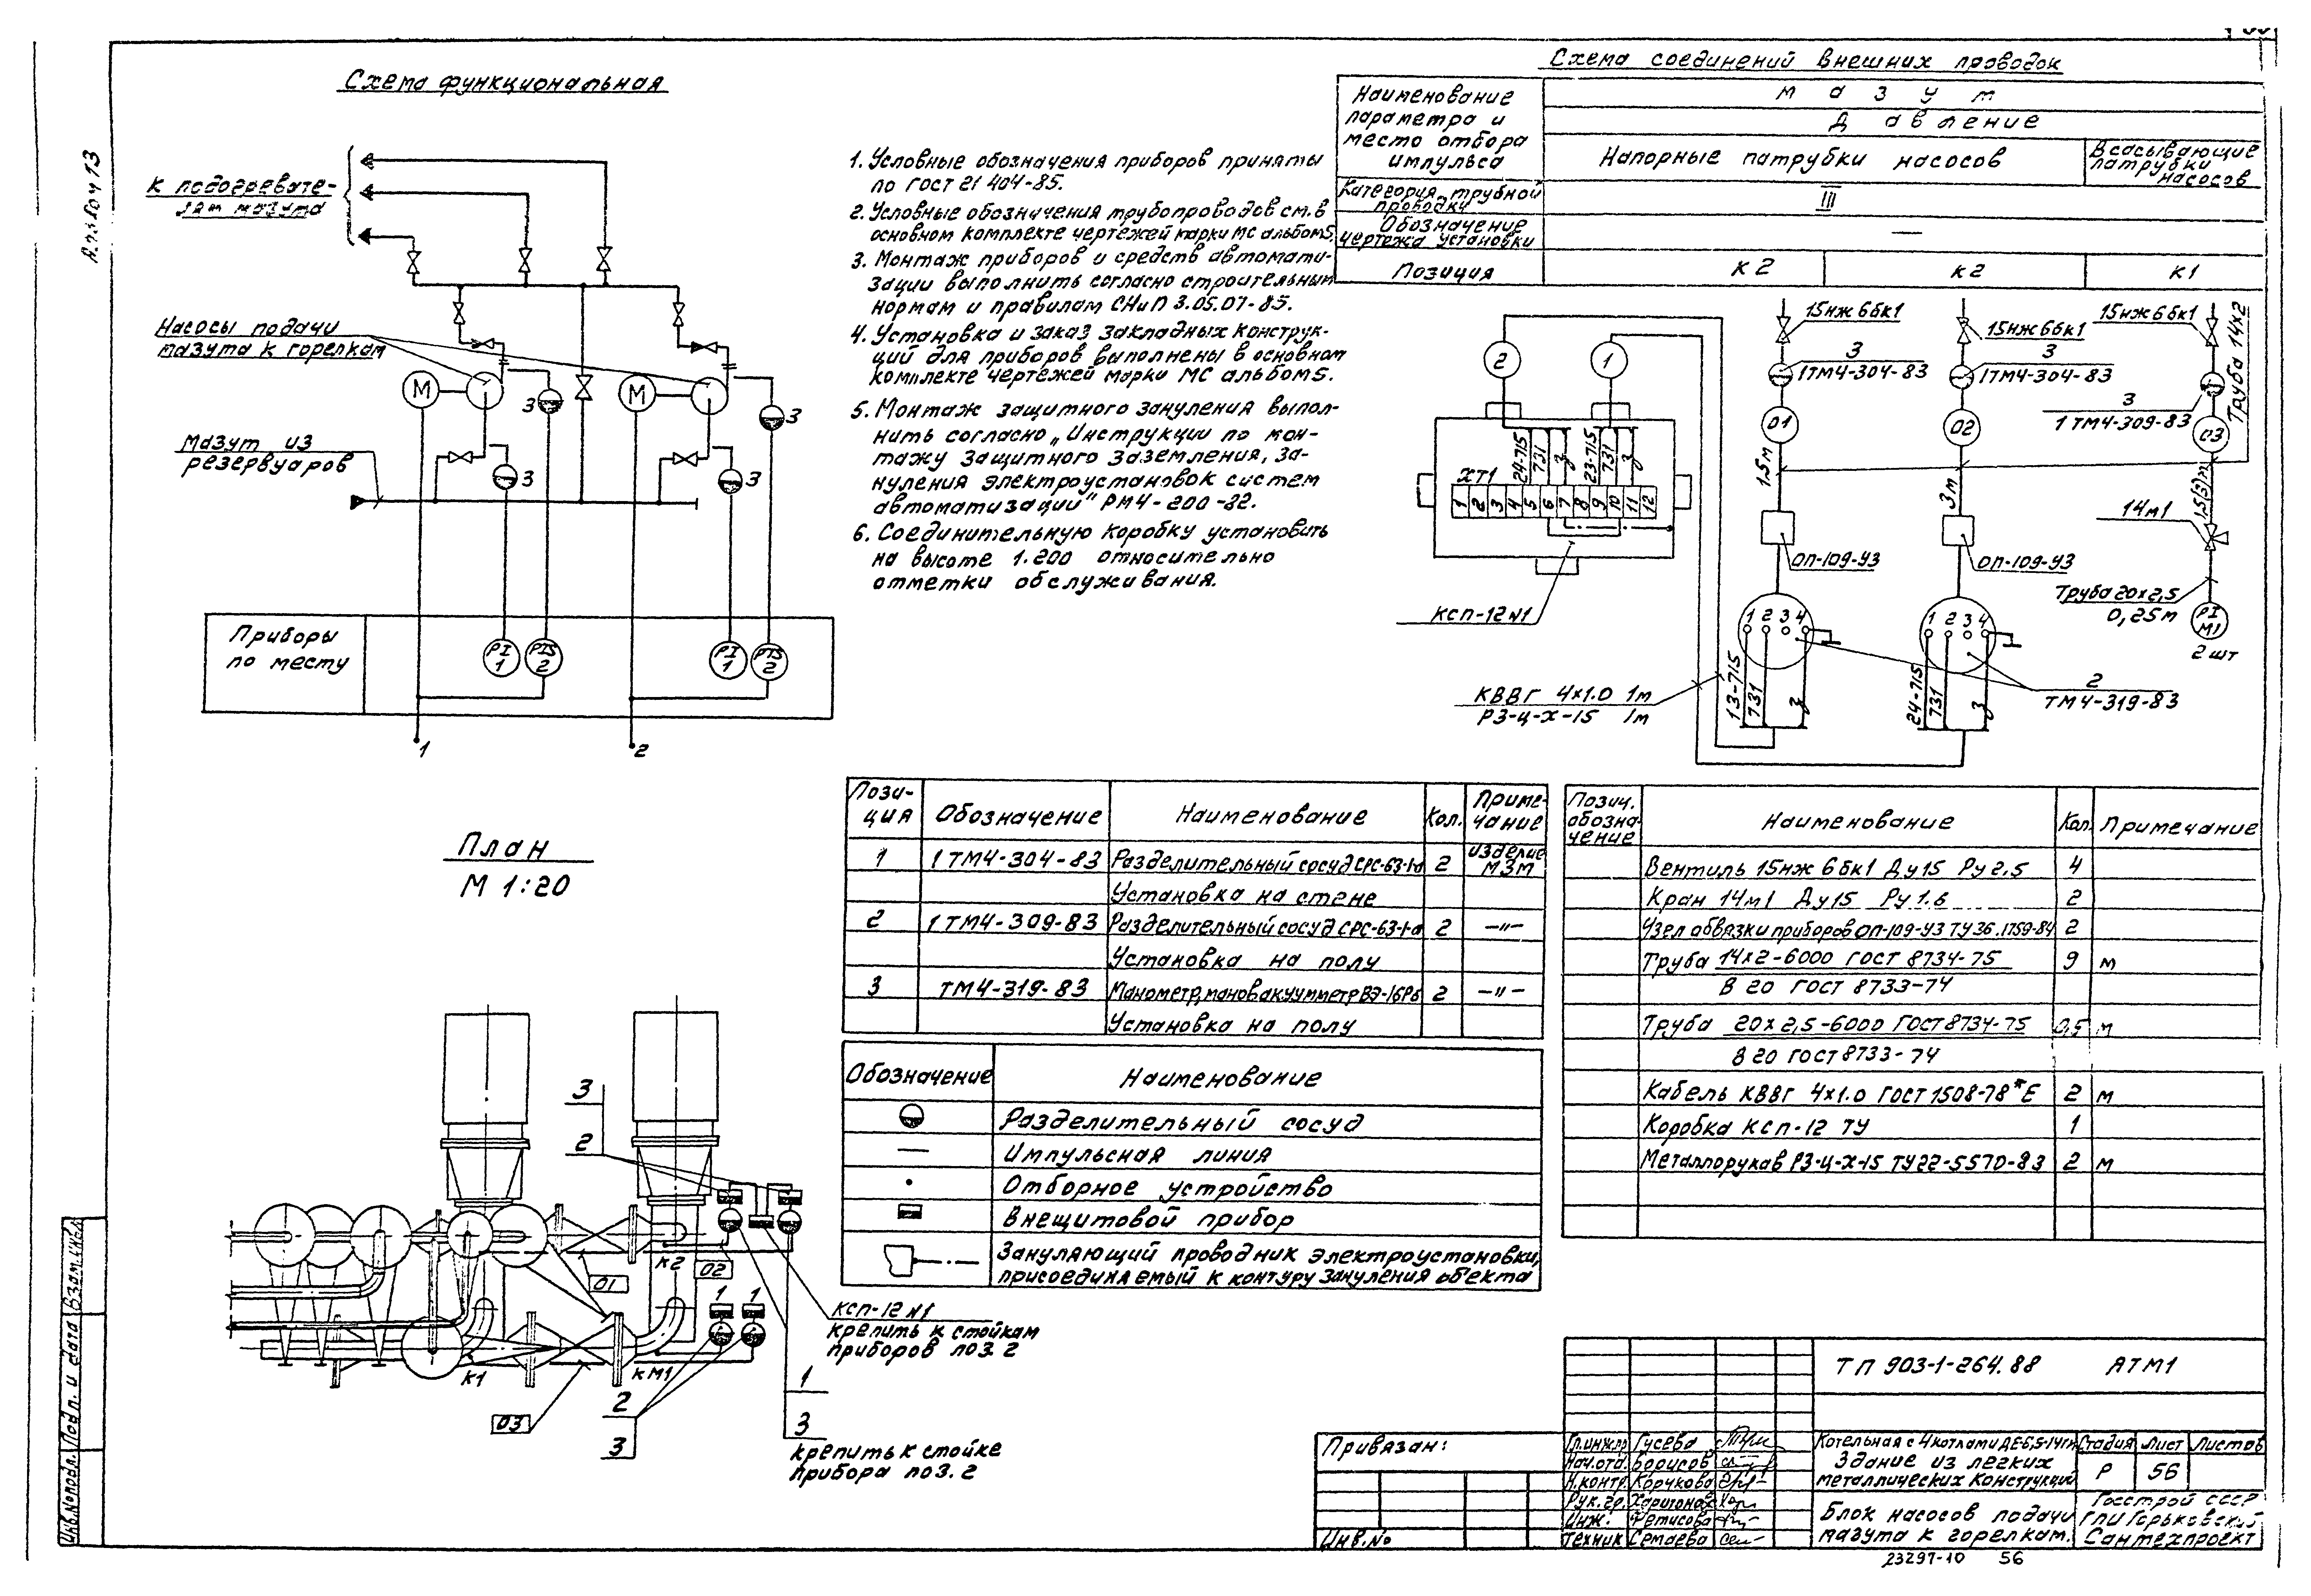 Альбом 13
Схема функциональная
К подогревате-
лям мазута
Насосы подачи
мазута к горелкам
М
М
3
3
3
3
Мазут из
резервуаров
Приборы
по месту
PI
1
PIS
2
PI
1
PIS
2
1
2
1. Условные обозначения приборов приняты
по ГОСТ 21 404-85.
2. Условные обозначения трубопроводов см. в
основном комплекте чертежей марки МС альбом 5.
3. Монтаж приборов и средств автомати-
зации выполнить согласно строительным
нормам и правилам СНиП 3.05.07-85.
4. Установка и заказ закладных конструк-
ций для приборов выполнены в основном
комплекте чертежей марки МС альбом 5.
5. Монтаж защитного зануления выпол-
нить согласно „Инструкции по мон-
тажу защитного заземления, за-
нуления электроустановок систем
автоматизации" РМ4-200-82.
6. Соединительную коробку установить
на высоте 1.200 относительно
отметки обслуживания.
Схема соединений внешних проводок
Наименование
параметра и
место отбора
импульса
мазут
Давление
Напорные патрубки насосов
Всасывающие
патрубки
насосов
Категория трубной
проводки
III
Обозначение
чертежа установки
—
Позиция
К2
К2
К1
2
1
ХТ1
24-715
731
3
23-715
731
3
1 2 3 4 5 6 7 8 9 10 11 12
КСП-12 №1
КВВГ 4х1.0 1м
РЗ-Ц-Х-15 1м
15нж6бк1
15нж6бк1
15нж6бк1
3
1ТМ4-304-83
3
1ТМ4-304-83
3
1 ТМ4-309-83
Труба 14х2
01
02
03
1,5м
3м
1,5(3)м
14м1
ОП-109-У3
ОП-109-У3
Труба 20х2,5
0,25м
PI
М1
2 шт
1 2 3 4
1 2 3 4
13-715
731
3
24-715
731
3
2
ТМ4-319-83
План
М 1:20
3
2
01
К2
02
1
1
К1
КМ1
03
2
3
КСП-12 №1
крепить к стойкам
приборов поз. 2
1
3
крепить к стойке
прибора поз. 2
Пози-
ция
Обозначение
Наименование
Кол.
Приме-
чание
1
1 ТМ4-304-83
Разделительный сосуд СРС-63-1-а
2
изделие
МЗМ
Установка на стене
2
1 ТМ4-309-83
Разделительный сосуд СРС-63-1-а
2
—"—
Установка на полу
3
ТМ4-319-83
Манометр, мановакуумметр ВЭ-16Рб
2
—"—
Установка на полу
Обозначение
Наименование
Разделительный сосуд
Импульсная линия
Отборное устройство
Внещитовой прибор
Зануляющий проводник электроустановки,
присоединяемый к контуру зануления объекта
Позиц.
обозна-
чение
Наименование
Кол.
Примечание
Вентиль 15нж 6бк1 Ду15 Ру 2.5
4
Кран 14м1 Ду15 Ру 1.6
2
Узел обвязки приборов ОП-109-У3 ТУ 36.1759-84
2
Труба 14х2-6000 ГОСТ 8734-75
9
м
В 20 ГОСТ 8733-74
Труба 20х2,5-6000 ГОСТ 8734-75
0,5
м
В 20 ГОСТ 8733-74
Кабель КВВГ 4х1.0 ГОСТ 1508-78*Е
2
м
Коробка КСП-12 ТУ
1
Металлорукав РЗ-Ц-Х-15 ТУ22-5570-83
2
м
ТП 903-1-264.88 АТМ1
Привязан:
Инв.№
Гл.инж.пр
Гусева
Нач.отд.
Борисов
Н.контр.
Корчкова
Рук.гр.
Харитонов
Инж.
Фетисова
Техник
Семаева
Котельная с 4 котлами ДЕ-6,5-14ГМ
Здание из легких
металлических конструкций
Стадия
Лист
Листов
Р
56
Блок насосов подачи
мазута к горелкам.
Госстрой СССР
ГПИ Горьковский
Сантехпроект
23297-10 56
Инв.№подл.
Подп. и дата
Взам.инв.